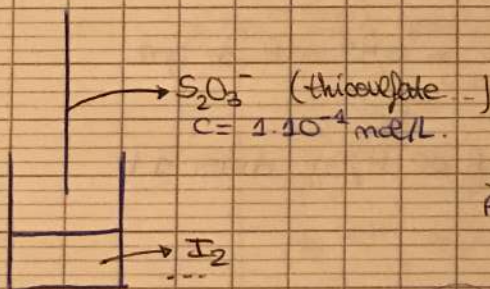 S₂O₃⁻ (thiosulfate ...)
C = 1.10⁻¹ mol/L.
I₂
---